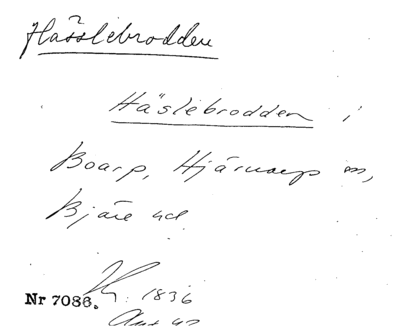 Hässlebrodden
Häslebrodden i
Boarp, Hjärnarp sn,
Bjäre hd
Nr 7086. 1836